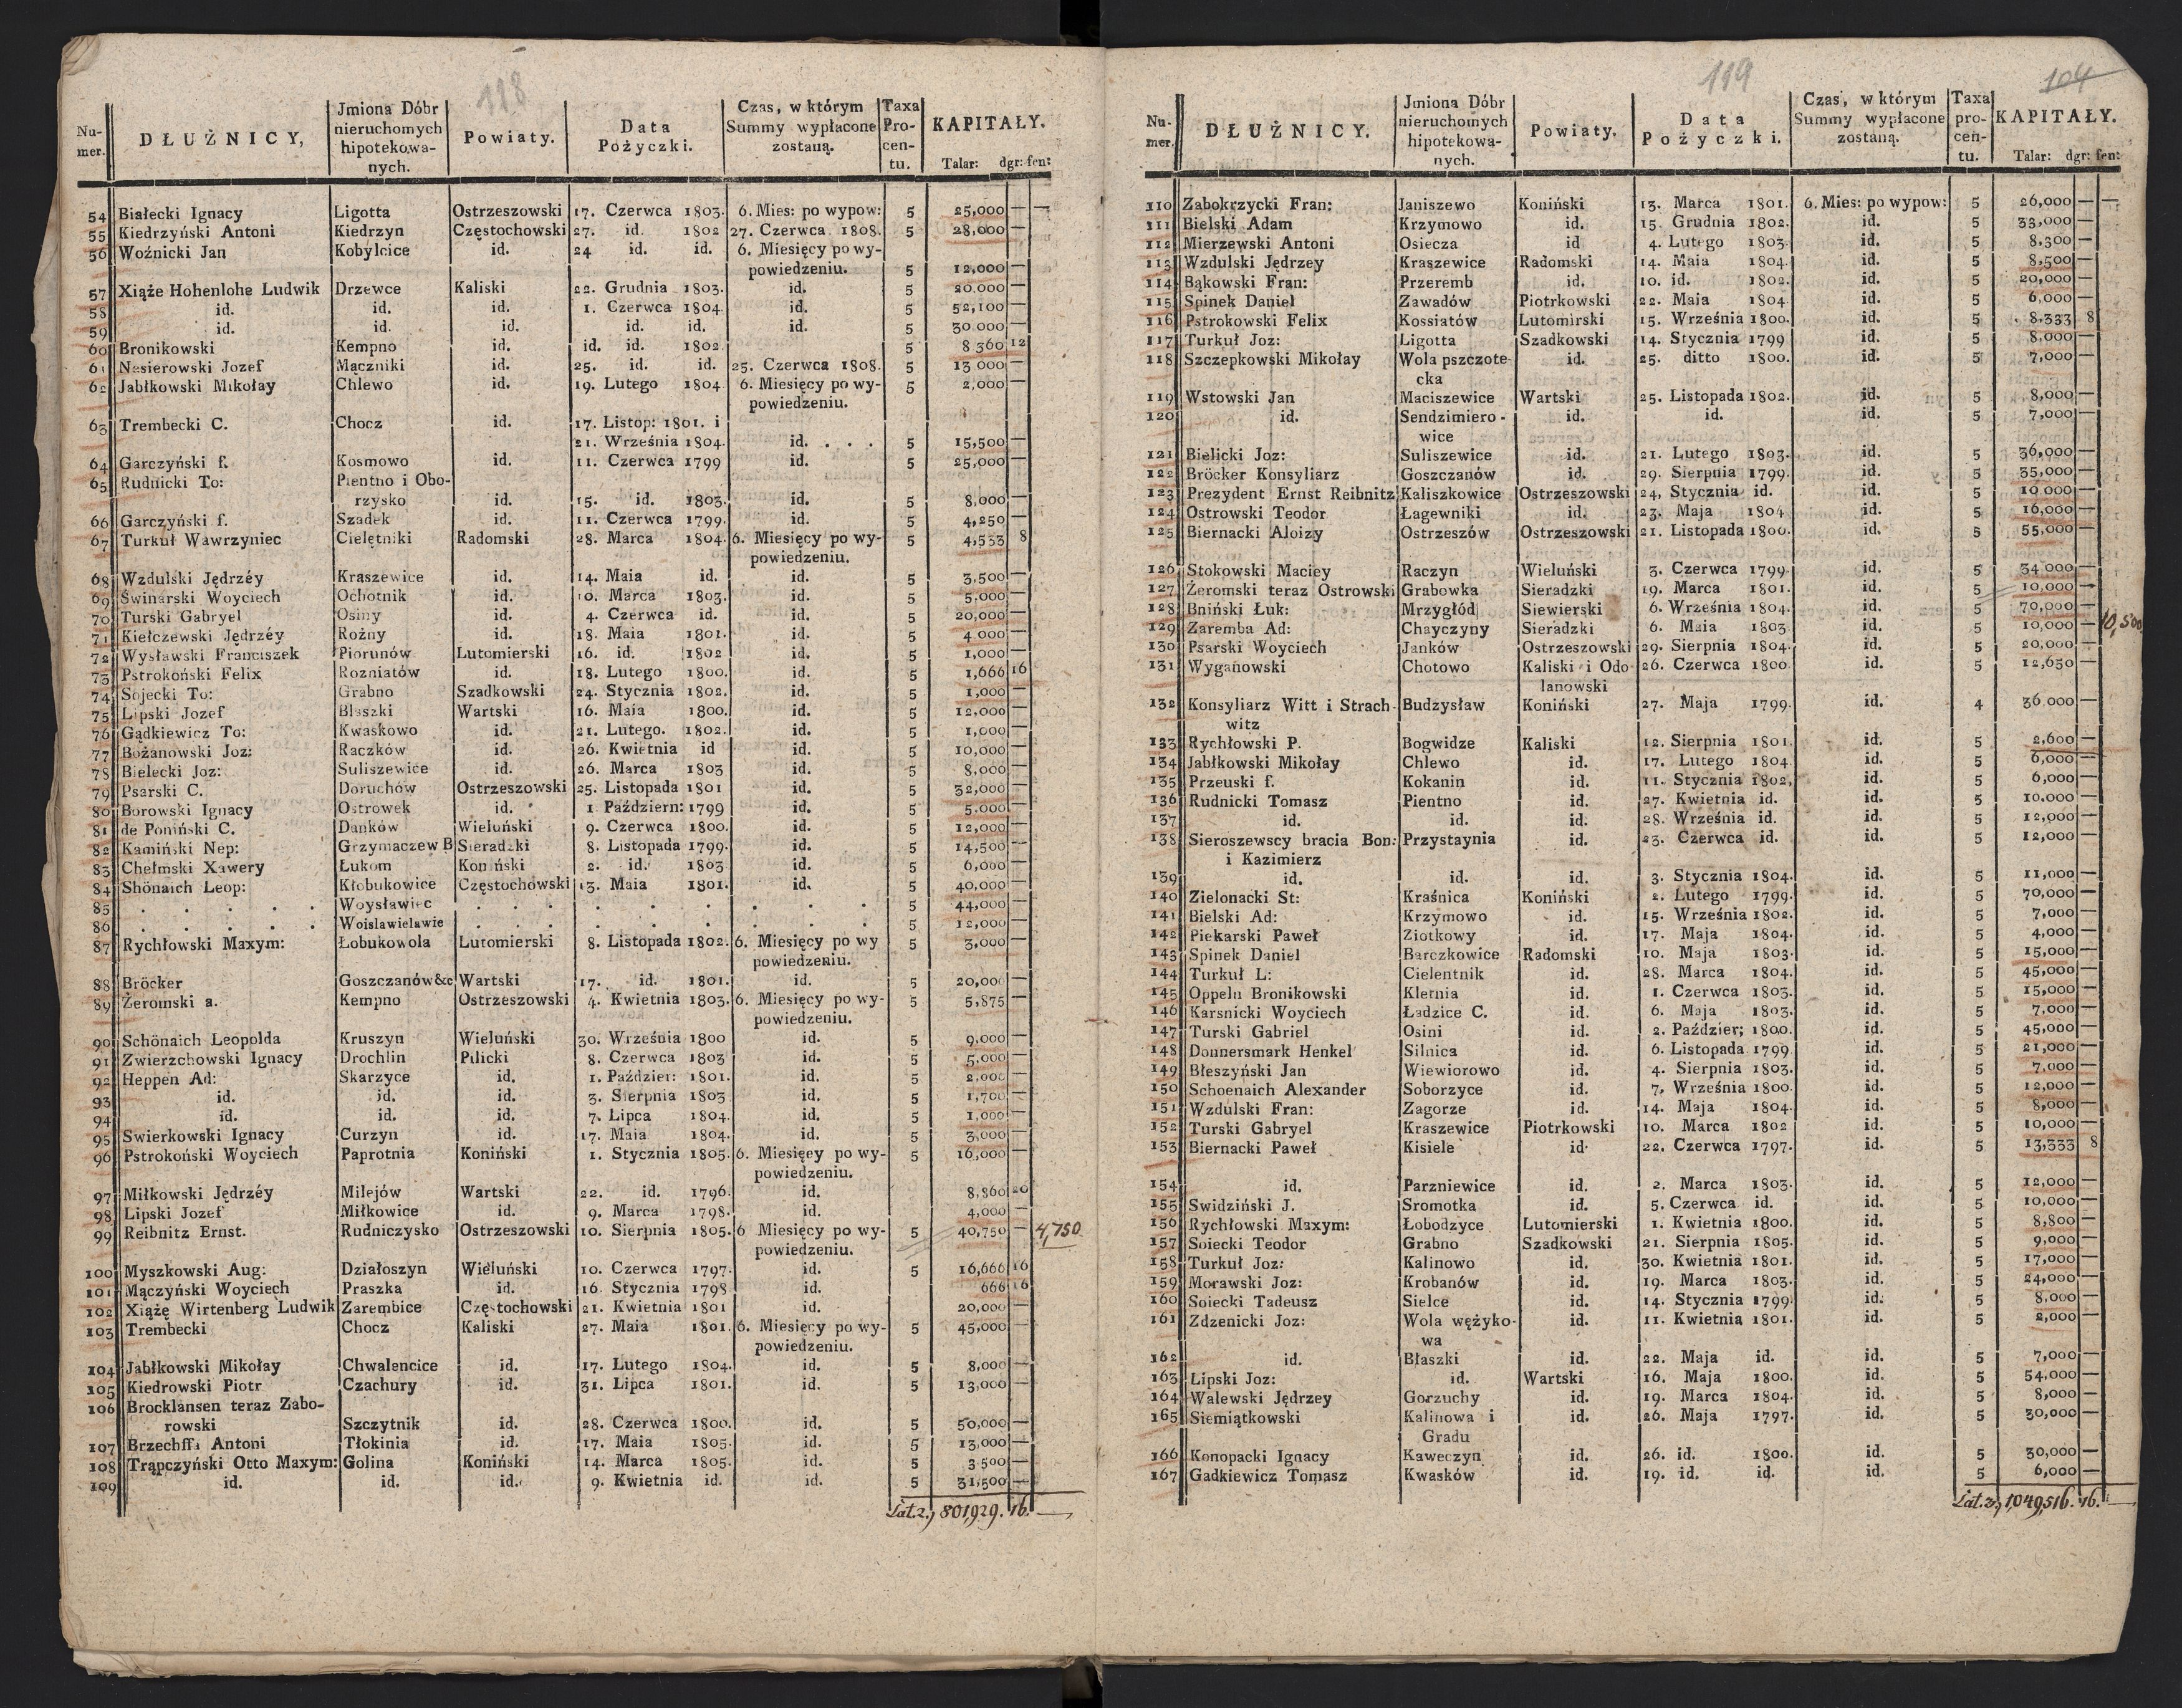 118
Nu-mer. DŁUŻNICY, Jmiona Dóbr nieruchomych hipotekowa-nych. Powiaty. Data Pożyczki. Czas, w którym Summy wypłacone zostaną. Taxa Pro-cen-tu. KAPITAŁY. Talar: dgr: fen:
54 Białecki Ignacy Ligotta Ostrzeszowski 17. Czerwca 1803. 6. Mies: po wypow: 5 25,000 — —
55 Kiedrzyński Antoni Kiedrzyn Częstochowski 27. id. 1802 27. Czerwca 1808. 5 28,000 —
56 Woźnicki Jan Kobylcice id. 24 id. id. 6. Miesięcy po wy-
powiedzeniu. 5 12,000 —
57 Xiąże Hohenlohe Ludwik Drzewce Kaliski 22. Grudnia 1803. id. 5 20.000 —
58 id. id. id. 1. Czerwca 1804. id. 5 52,100 —
59 id. id. id. id. id. id. 5 30 000 —
60 Bronikowski Kempno id. id. id. 1802. 5 8 360 12
61 Nasierowski Jozef Mączniki id. 25. id. id. 25. Czerwca 1808. 5 13 000 —
62 Jabłkowski Mikołay Chlewo id. 19. Lutego 1804 6. Miesięcy po wy- 5 2,000 —
powiedzeniu.
63 Trembecki C. Chocz id. 17. Listop: 1801. i
21. Września 1804. id. . . . 5 15,500 —
64 Garczyński f. Kosmowo id. 11. Czerwca 1799 id. 5 25,000 —
65 Rudnicki To: Pientno i Obo-
rzysko id. 15. id. 1803. id. 5 8,000 —
66 Garczyński f. Szadek id. 11. Czerwca 1799. id. 5 4,250 —
67 Turkuł Wawrzyniec Cielętniki Radomski 28. Marca 1804. 6. Miesięcy po wy- 5 4,533 8
powiedzeniu.
68 Wzdulski Jędrzéy Kraszewice id. 14. Maia id. id. 5 3,500 —
69 Swinarski Woyciech Ochotnik id. 10. Marca 1803. id. 5 5,000 —
70 Turski Gabryel Osiny id. 4. Czerwca id. id. 5 20,000 —
71 Kiełczewski Jędrzéy Rożny id. 18. Maia 1801. id. 5 4 000 —
72 Wysławski Franciszek Piorunów Lutomierski 16. id. 1802 id. 5 1,000 —
73 Pstrokoński Felix Rozniatów id. 18. Lutego 1800. id. 5 1,666 16
74 Sojecki To: Grabno Szadkowski 24. Stycznia 1802. id. 5 1,000 —
75 Lipski Jozef Błaszki Wartski 16. Maia 1800. id. 5 12,000 —
76 Gądkiewicz To: Kwaskowo id. 21. Lutego. 1802. id. 5 1,000 —
77 Bożanowski Joz: Raczków id. 26. Kwietnia id id. 5 10,000 —
78 Bielecki Joz: Suliszewice id. 26. Marca 1803 id. 5 8,000 —
79 Psarski C. Doruchów Ostrzeszowski 25. Listopada 1801 id. 5 32,000 —
80 Borowski Ignacy Ostrowek id. 1. Październ: 1799 id. 5 5.000 —
81 de Poniński C. Danków Wieluński 9. Czerwca 1800. id. 5 12,000 —
82 Kamiński Nep: Grzymaczew B Sieradzki 8. Listopada 1799. id. 5 14,500 —
83 Chełmski Xawery Łukom Koniński 2. id. 1803 id. 5 6,000 —
84 Shönaich Leop: Kłobukowice Częstochowski 13. Maia 1801. id. 5 40,000 —
85 . . . . . Woysławiec . . . . . . . . 5 44,000 —
86 . . . . . Woislawielawie . . . . . . . . 5 12,000 —
87 Rychłowski Maxym: Łobukowola Lutomierski 8. Listopada 1802. 6. Miesięcy po wy 5 3,000 —
powiedzeniu.
88 Bröcker Goszczanów&c Wartski 17. id. 1801. id. 5 20,000 —
89 Żeromski a. Kempno Ostrzeszowski 4. Kwietnia 1803. 6. Miesięcy po wy- 5 5,875 —
powiedzeniu.
90 Schönaich Leopolda Kruszyn Wieluński 30. Września 1800 id. 5 9,000 —
91 Zwierzchowski Ignacy Drochlin Pilicki 8. Czerwca 1803 id. 5 5,000 —
92 Heppen Ad: Skarzyce id. 1. Paździer: 1801. id. 5 2,000 —
93 id. id. id. 3. Sierpnia 1803 id. 5 1,700 —
94 id. id. id. 7. Lipca 1804. id. 5 1,000 —
95 Swierkowski Ignacy Curzyn id. 17. Maia 1804. id. 5 3,000 —
96 Pstrokoński Woyciech Paprotnia Koniński 1. Stycznia 1805. 6. Miesięcy po wy- 5 16,000 —
powiedzeniu.
97 Miłkowski Jędrzéy Milejów Wartski 22. id. 1796. id. 8,860 20
98 Lipski Jozef Miłkowice id. 9. Marca 1798. id. 4,000 —
99 Reibnitz Ernst. Rudniczysko Ostrzeszowski 10. Sierpnia 1805. 6 Miesięcy po wy- 5 40,750 — 4,750
powiedzeniu.
100 Myszkowski Aug: Działoszyn Wieluński 10. Czerwca 1797. id. 5 16,666 16
101 Mączyński Woyciech Praszka id. 16. Stycznia 1798 id. 666 16
102 Xiążę Wirtenberg Ludwik Zarembice Częstochowski 21. Kwietnia 1801 id. 20,000 —
103 Trembecki Chocz Kaliski 27. Maia 1801. 6. Miesięcy po wy- 5 45,000 —
powiedzeniu.
104 Jabłkowski Mikołay Chwalencice id. 17. Lutego 1804. id. 5 8,000 —
105 Kiedrowski Piotr Czachury id. 31. Lipca 1801. id. 5 13,000 —
106 Brocklansen teraz Zabo-
rowski Szczytnik id. 28. Czerwca 1800. id. 5 50,000 —
107 Brzechffa Antoni Tłokinia id. 17. Maia 1805. id. 5 13,000 —
108 Trąpczyński Otto Maxym: Golina Koniński 14. Marca 1805. id. 5 3 500 —
109 id. id. id. 9. Kwietnia id. id. 5 31,500 —
Lat. 2., 801,929. 16. —
119 104
Nu-mer. DŁUŻNICY. Jmiona Dóbr nieruchomych hipotekowa-nych. Powiaty. Data Pożyczki. Czas, w którym Summy wypłacone zostaną. Taxa pro-cen-tu. KAPITAŁY. Talar: dgr: fen:
110 Zabokrzycki Fran: Janiszewo Koniński 13. Marca 1801. 6. Mies: po wypow: 5 26,000 — —
111 Bielski Adam Krzymowo id. 15. Grudnia 1802. id. 5 33,000 —
112 Mierzewski Antoni Osiecza id 4. Lutego 1803. id. 5 8,300 —
113 Wzdulski Jędrzey Kraszewice Radomski 14. Maia 1804. id. 5 8,500 —
114 Bąkowski Fran: Przeremb id. 10. id. 1802. id. 5 20,000 —
115 Spinek Daniel Zawadów Piotrkowski 22. Maia 1804 id. 5 6,000 —
116 Pstrokowski Felix Kossiatów Lutomirski 15. Września 1800. id. 5 8,333 8
117 Turkuł Joz: Ligotta Szadkowski 14. Stycznia 1799 id. 5 8,000 —
118 Szczepkowski Mikołay Wola pszczote- id. 25. ditto 1800. id. 5 7,000 —
cka
119 Wstowski Jan Maciszewice Wartski 25. Listopada 1802. id. 5 8,000 —
120 id. Sendzimiero- id. id. id. 5 7,000 —
wice
121 Bielicki Joz: Suliszewice id. 21. Lutego 1803. id. 5 36,000 —
122 Bröcker Konsyliarz Goszczanów id. 29. Sierpnia 1799. id. 5 35,000 —
123 Prezydent Ernst Reibnitz Kaliszkowice Ostrzeszowski 24, Stycznia id. id. 5 10 000 —
124 Ostrowski Teodor Łagewniki id. 23. Maja 1804 id. 5 16,000 —
125 Biernacki Aloizy Ostrzeszów Ostrzeszowski 21. Listopada 1800. id. 5 55,000 —
126 Stokowski Maciey Raczyn Wieluński 3. Czerwca 1799. id. 5 34 000 —
127 Żeromski teraz Ostrowski Grabowka Sieradzki 19. Marca 1801. id. 5 10,000 —
128 Bniński Łuk: Mrzygłód Siewierski 6. Września 1804. id. 5 70,000 —
129 Zaremba Ad: Chayczyny Sieradzki 6. Maia 1803 id. 5 10,000 — 10,500
130 Psarski Woyciech Janków Ostrzeszowski 29. Sierpnia 1804. id. 5 20,000 —
131 Wyganowski Chotowo Kaliski i Odo- 26. Czerwca 1800 id. 5 12,650 —
lanowski
132 Konsyliarz Witt i Strach- Budzysław Koniński 27. Maja 1799. id. 4 36 000 —
witz
133 Rychłowski P. Bogwidze Kaliski 12. Sierpnia 1801. id. 5 2,600 —
134 Jabłkowski Mikołay Chlewo id. 17. Lutego 1804. id. 5 6,000 —
135 Przeuski f. Kokanin id. 11. Stycznia 1802, id. 5 6,000 —
136 Rudnicki Tomasz Pientno id. 27. Kwietnia id. id. 5 10.000 —
137 id. id. id. 28. Września id. id. 5 12,000 —
138 Sieroszewscy bracia Bon: Przystaynia id. 23. Czerwca id. id. 5 12,000 —
i Kazimierz
139 id. id. id. 3. Stycznia 1804. id. 5 11,000 —
140 Zielonacki St: Kraśnica Koniński 2. Lutego 1799. id. 5 70,000 —
141 Bielski Ad: Krzymowo id. 15. Września 1802. id. 5 7,000 —
142 Piekarski Paweł Ziotkowy id. 17. Maja 1804. id. 5 4,000 —
143 Spinek Daniel Barczkowice Radomski 10. Maja 1803. id. 5 15,000 —
144 Turkuł L: Cielentnik id. 28. Marca 1804. id. 5 45,000 —
145 Oppeln Bronikowski Kletnia id. 1. Czerwca 1803. id. 5 15,000 —
146 Karsnicki Woyciech Ładzice C. id. 6. Maja 1803. id. 5 7,000 —
147 Turski Gabriel Osini id. 2. Paździer; 1800. id. 5 45,000 —
148 Donnersmark Henkel Silnica id. 6. Listopada 1799 id. 5 21,000 —
149 Błeszyński Jan Wiewiorowo id. 4. Sierpnia 1803. id. 5 7,000 —
150 Schoenaich Alexander Soborzyce id. 7, Września 1800. id. 5 12,000 —
151 Wzdulski Fran: Zagorze id. 14. Maja 1804. id. 5 8,000 —
152 Turski Gabryel Kraszewice Piotrkowski 10. Marca 1802 id. 5 10,000 —
153 Biernacki Paweł Kisiele id. 22. Czerwca 1797. id. 5 13,333 8
154 id. Parzniewice id. 2. Marca 1803. id. 5 12,000 —
155 Swidziński J. Sromotka id. 5. Czerwca id. id. 5 10,000 —
156 Rychłowski Maxym: Łobodzyce Lutomierski 1. Kwietnia 1800. id. 5 8,800 —
157 Soiecki Teodor Grabno Szadkowski 21. Sierpnia 1805. id. 5 9,000 —
158 Turkuł Joz: Kalinowo id. 30. Kwietnia 1801. id. 5 17,000 —
159 Morawski Joz: Krobanów id. 19. Marca 1803. id. 5 24,000 —
160 Soiecki Tadeusz Sielce id. 14. Stycznia 1799. id. 5 8,000 —
161 Zdzenicki Joz: Wola wężyko- id. 11. Kwietnia 1801. id. 5 2,000 —
wa
162 id. Błaszki id. 22. Maja id. id. 5 7,000 —
163 Lipski Joz: id. Wartski 16. Maja 1800. id. 5 54,000 —
164 Walewski Jędrzey Gorzuchy id. 19. Marca 1804. id. 5 8,000 —
165 Siemiątkowski Kalinowa i id. 26. Maja 1797. id. 5 30,000 —
Gradu
166 Konopacki Ignacy Kaweczyn id. 26. id. 1800. id. 5 30,000 —
167 Gadkiewicz Tomasz Kwasków id. 19. id. id. id. 5 6,000 —
Lat. 3., 1,049,516. 16. —